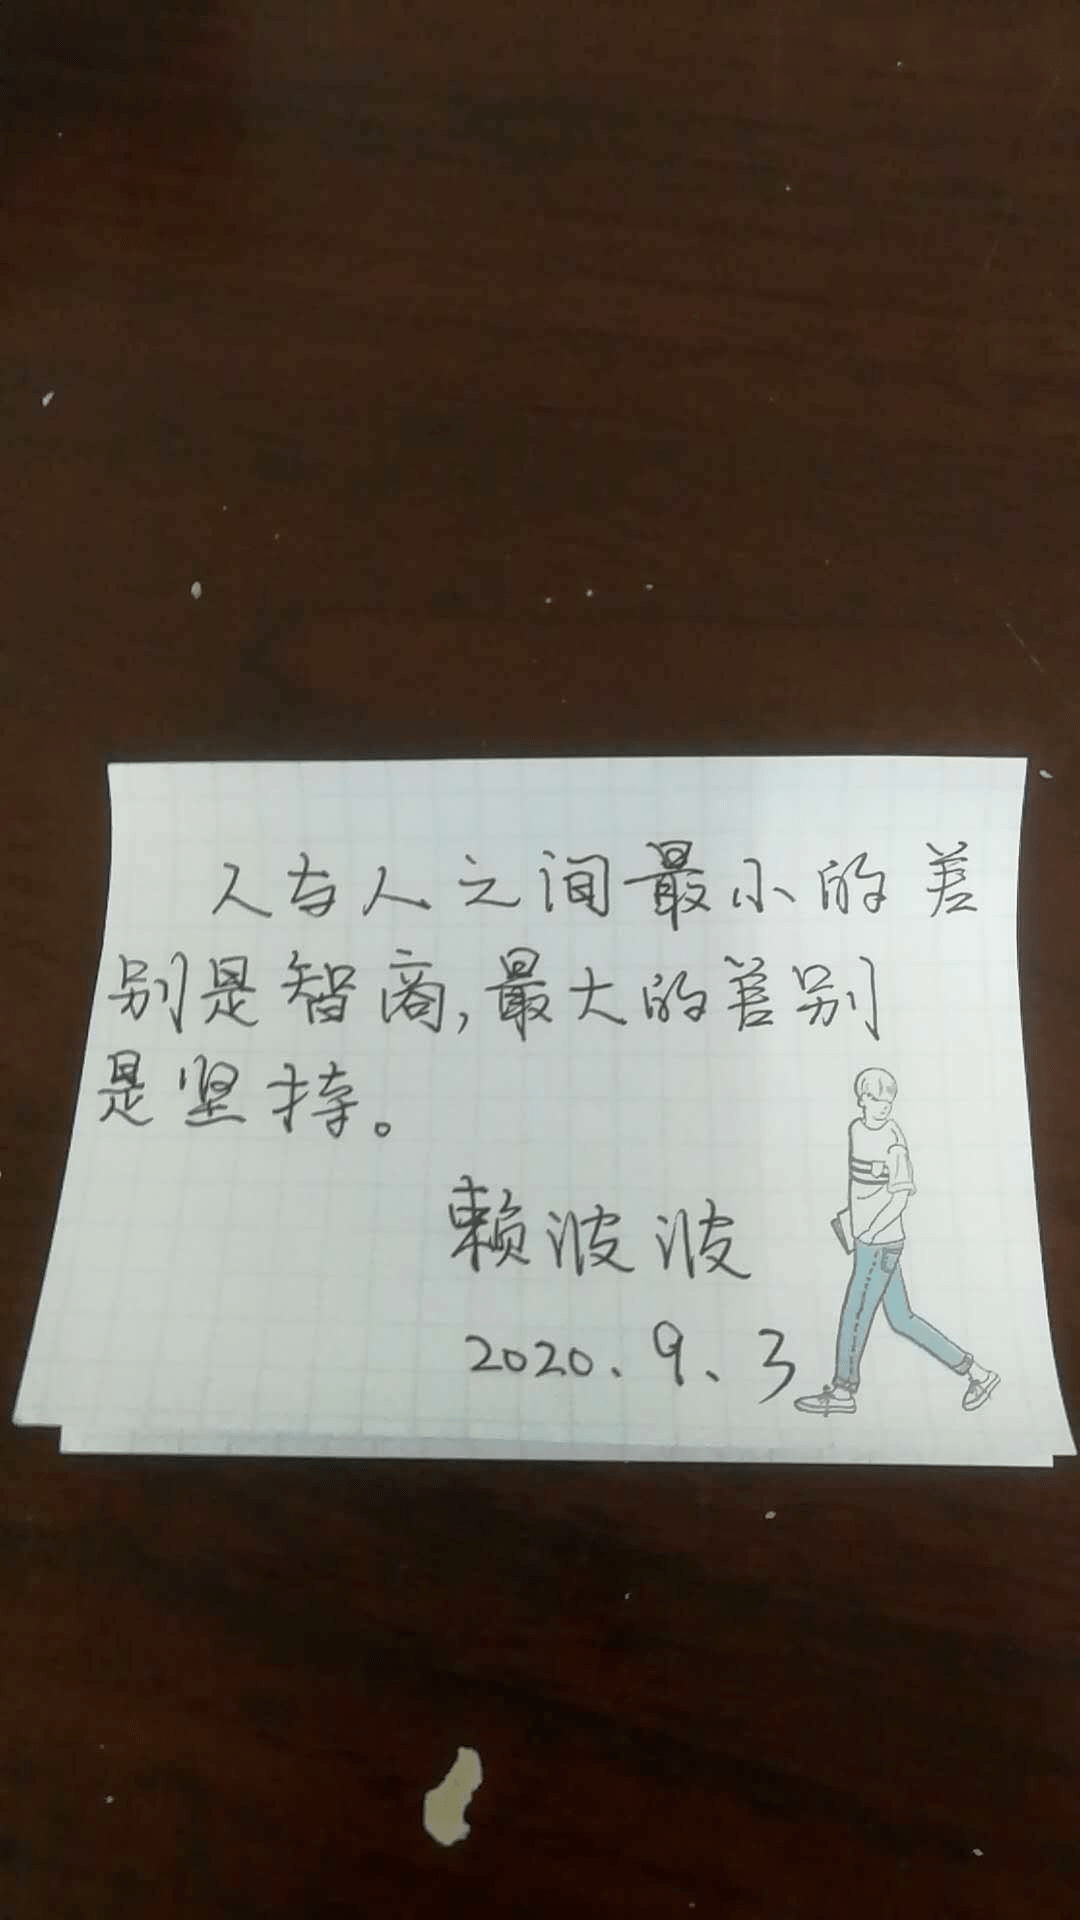 人与人之间最小的差
别是智商,最大的差别
是坚持。
赖波波
2020.9.3